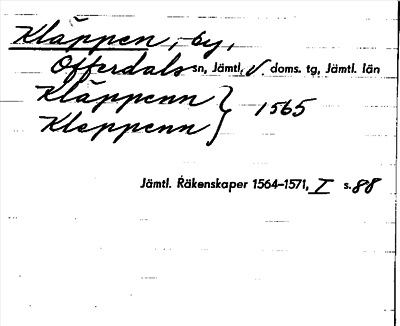 Kläppen, by,
Offerdals sn, Jämtl, V. doms. tg, Jämtl. län
Kläppenn } 1565
Kleppenn
Jämtl. Räkenskaper 1564–1571, I s. 88